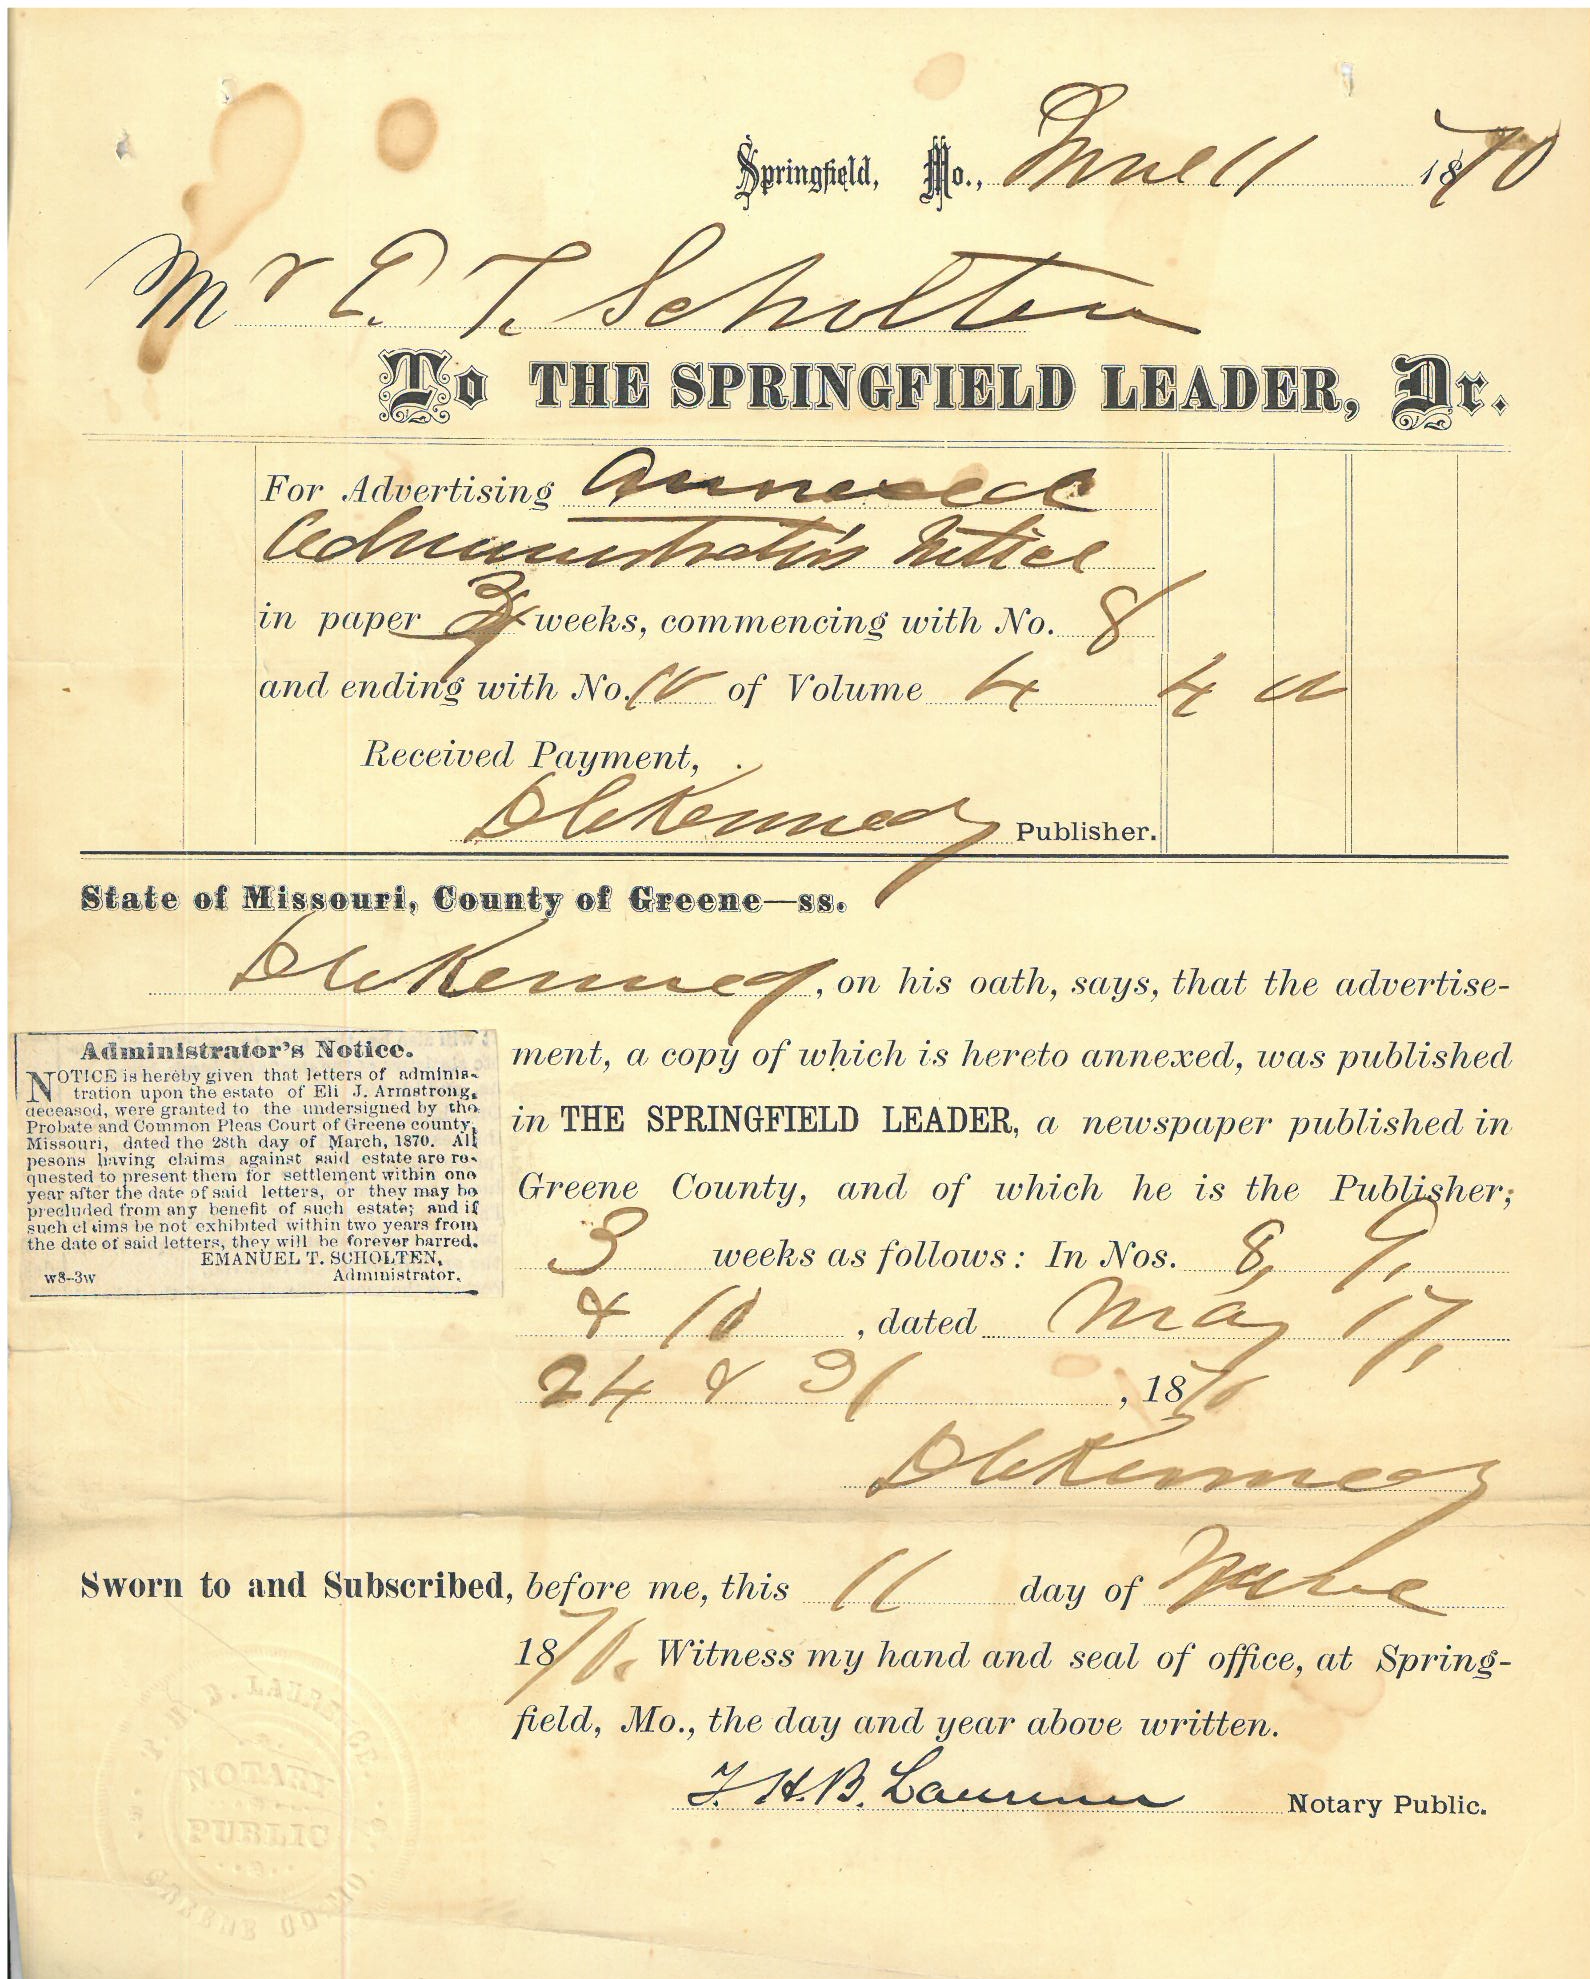 Springfield, Mo., June 11 1870
Mr E. T. Scholten
To THE SPRINGFIELD LEADER, Dr.
For Advertising Annexed
Administrator's Notice
in paper 3 weeks, commencing with No. 8
and ending with No. 10 of Volume 4 4
Received Payment,
D C Kennedy Publisher.
State of Missouri, County of Greene—ss.
D C Kennedy, on his oath, says, that the advertise-
ment, a copy of which is hereto annexed, was published
in THE SPRINGFIELD LEADER, a newspaper published in
Greene County, and of which he is the Publisher;
3 weeks as follows: In Nos. 8, 9,
& 10, dated May 17,
24 & 31, 1870
D C Kennedy
Administrator's Notice.
NOTICE is hereby given that letters of adminis-
tration upon the estate of Eli J. Armstrong,
deceased, were granted to the undersigned by the
Probate and Common Pleas Court of Greene county,
Missouri, dated the 28th day of March, 1870. All
pesons having claims against said estate are re-
quested to present them for settlement within one
year after the date of said letters, or they may be
precluded from any benefit of such estate; and if
such claims be not exhibited within two years from
the date of said letters, they will be forever barred.
EMANUEL T. SCHOLTEN,
w8-3w Administrator.
Sworn to and Subscribed, before me, this 11 day of June
1870. Witness my hand and seal of office, at Spring-
field, Mo., the day and year above written.
F. H. B. Notary Public.
NOTARY
PUBLIC
GREENE CO MO